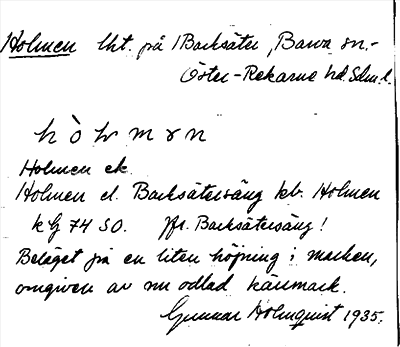 Holmen lht. på 1 Backsäter, Barva sn.-
Öster-Rekarne hd. Sdm l.
h ò l m ə n
Holmen ek.
Holmen el. Backsätersäng kb. Holmen
k G 74 SO. Jfr. Backsätersäng!
Beläget på en liten höjning i marken,
omgiven av nu odlad kärrmark.
Gunnar Holmquist 1935.